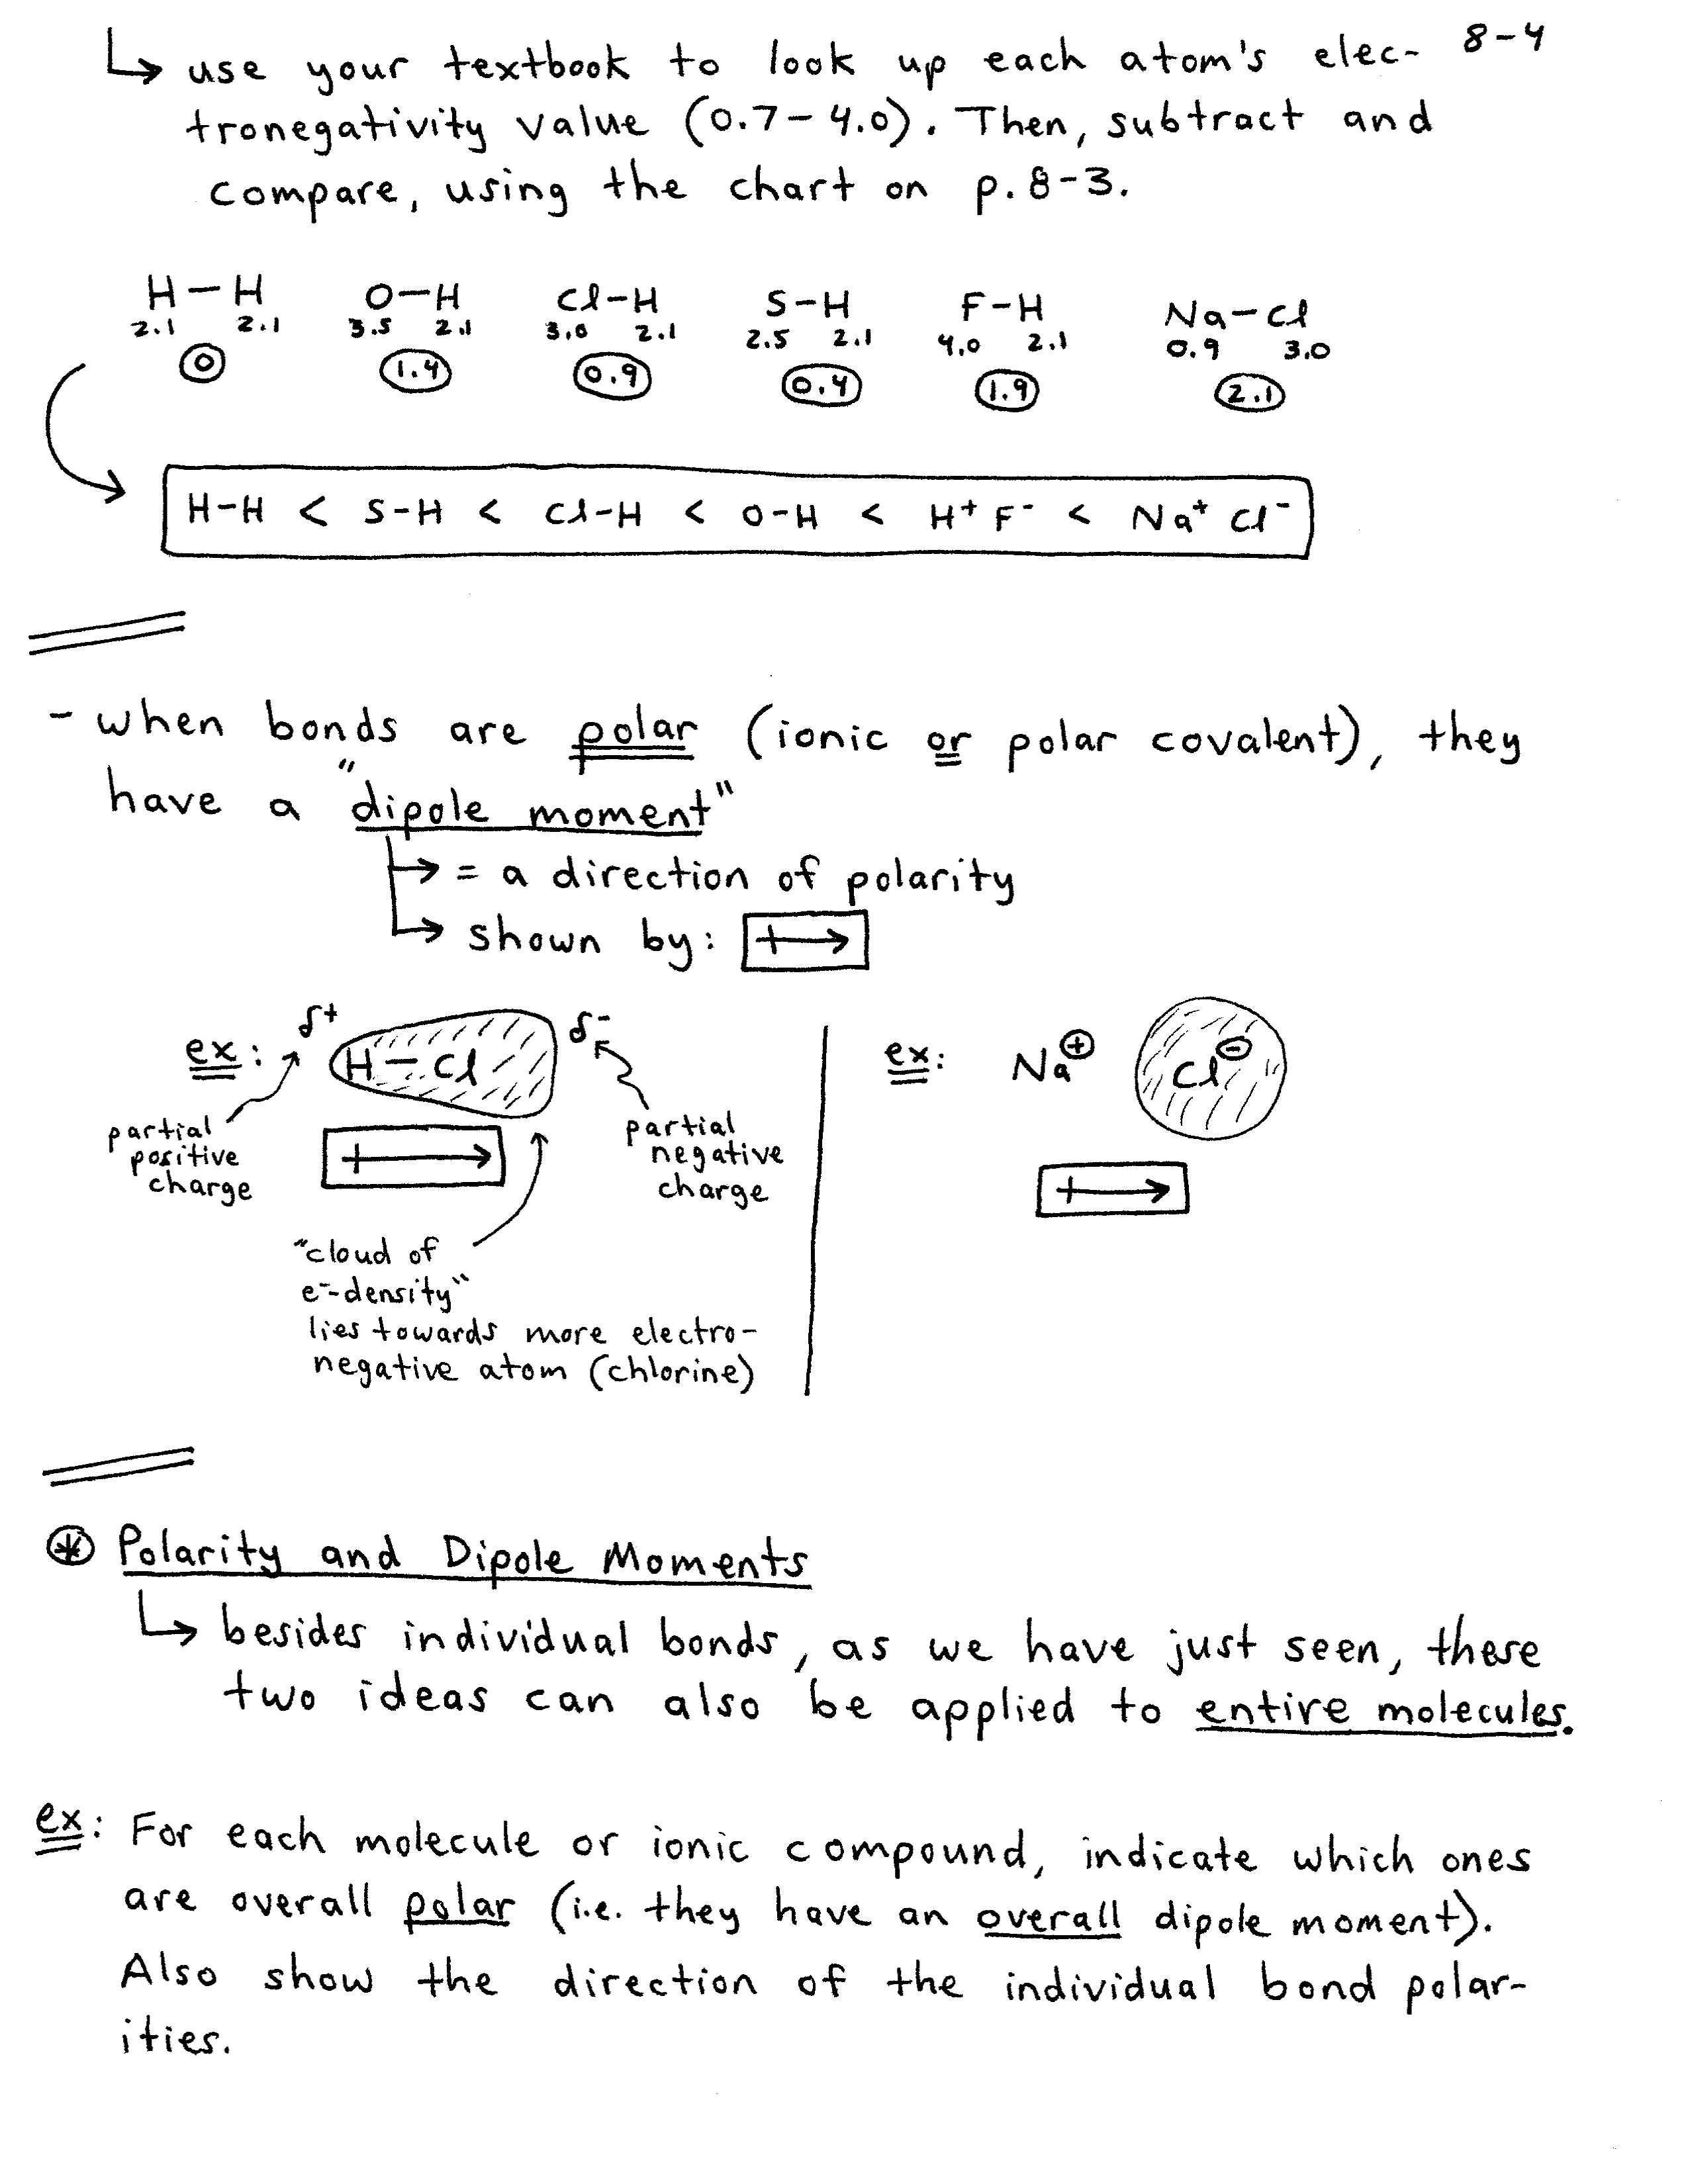 8-4
↳ use your textbook to look up each atom's elec-
tronegativity value (0.7-4.0). Then, subtract and
compare, using the chart on p. 8-3.
H-H O-H Cl-H S-H F-H Na-Cl
2.1 2.1 3.5 2.1 3.0 2.1 2.5 2.1 4.0 2.1 0.9 3.0
0 1.4 0.9 0.4 1.9 2.1
H-H < S-H < Cl-H < O-H < H⁺ F⁻ < Na⁺ Cl⁻
- when bonds are polar (ionic or polar covalent), they
have a "dipole moment"
↳ = a direction of polarity
↳ shown by:
ex: δ+ H-Cl δ-
partial
positive
charge
partial
negative
charge
"cloud of
e⁻-density"
lies towards more electro-
negative atom (chlorine)
ex: Na⊕ Cl⊖
⊛ Polarity and Dipole Moments
↳ besides individual bonds, as we have just seen, these
two ideas can also be applied to entire molecules.
ex: For each molecule or ionic compound, indicate which ones
are overall polar (i.e. they have an overall dipole moment).
Also show the direction of the individual bond polar-
ities.